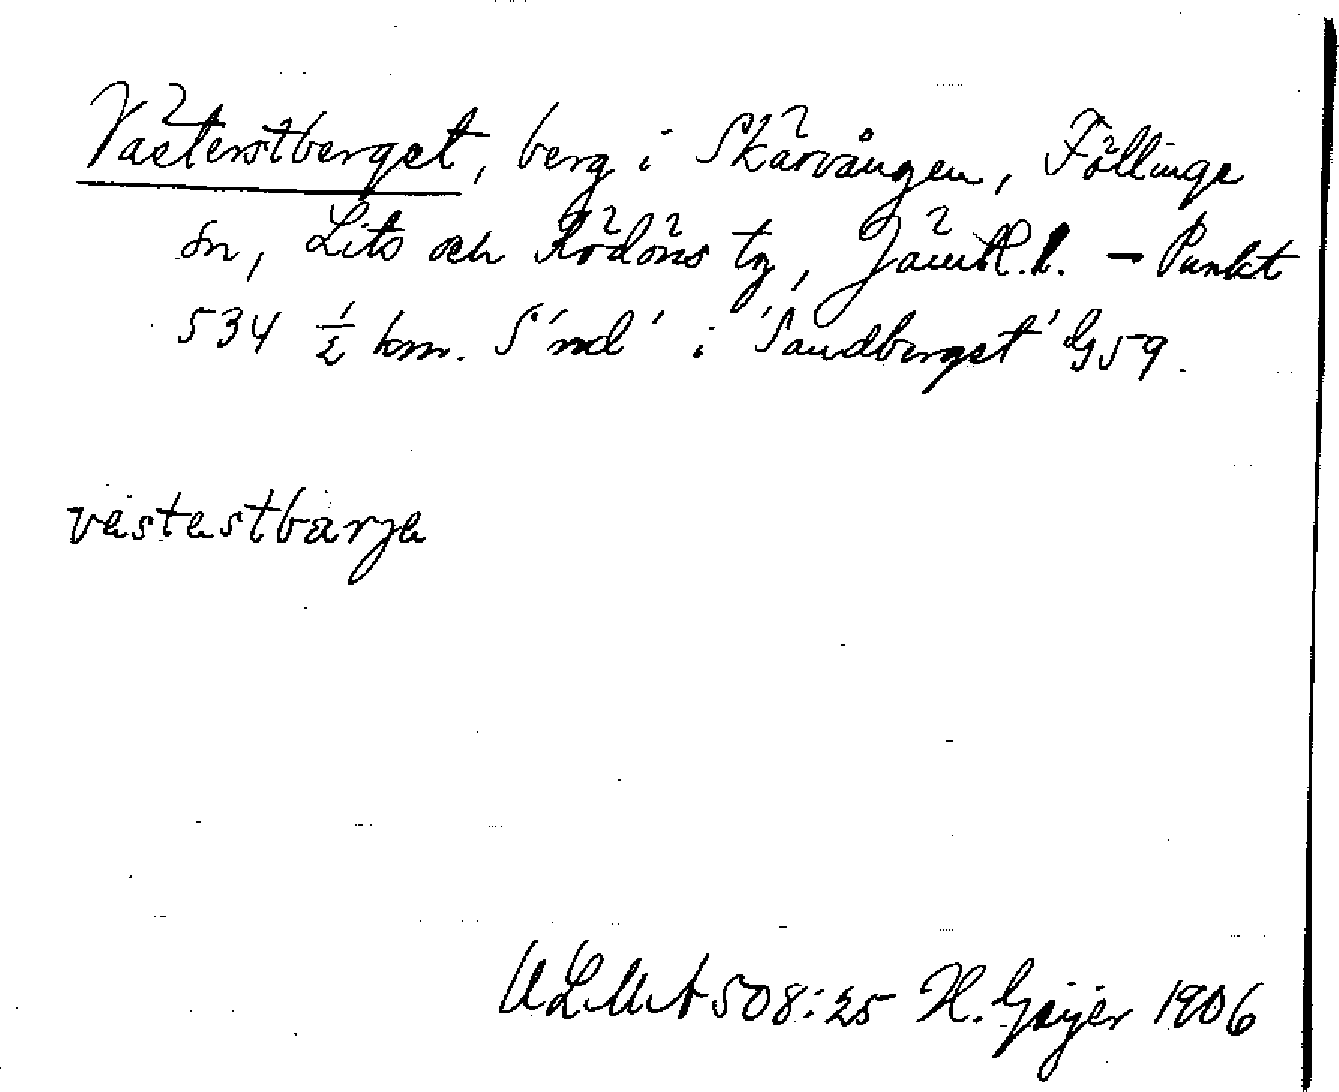 Västerstberget, berg i Skärvången, Föllinge
sn, Lits och Rödöns tg, Jämtl.l. – Punkt
534 ½ km. S 'nd' i 'Sandberget' G59.
västestbärje
ULMA 508:25 H. Geijer 1906